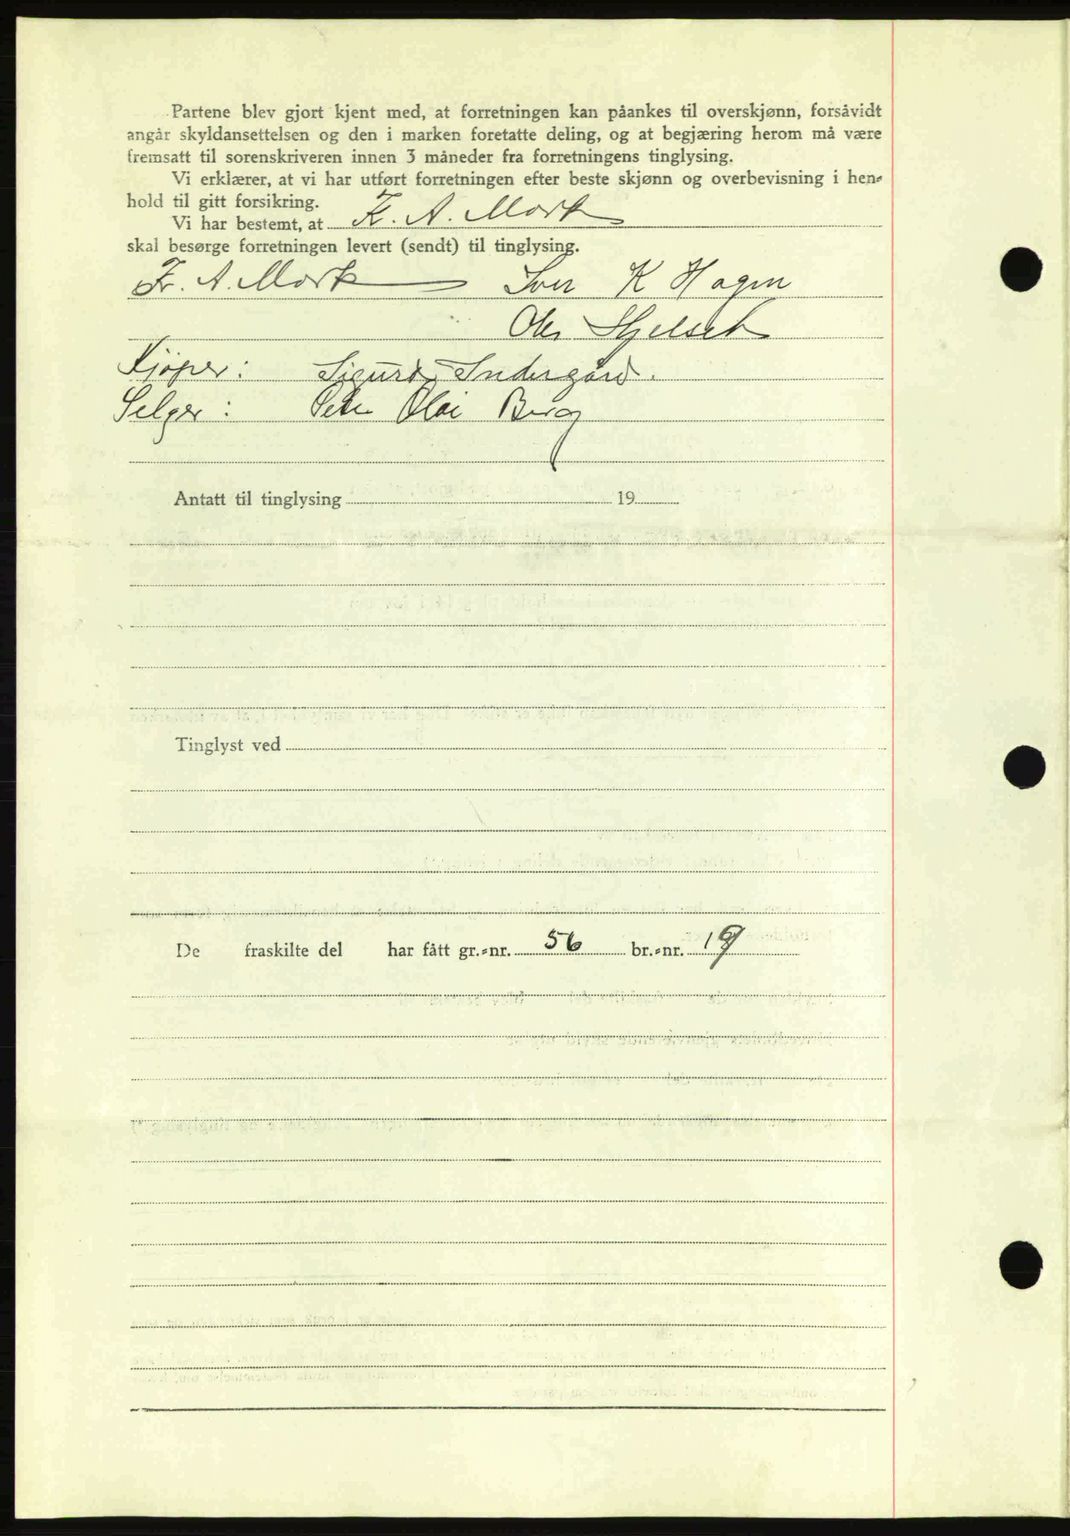 Partene blev gjort kjent med, at forretningen kan påankes til overskjønn, forsåvidt
angår skyldansettelsen og den i marken foretatte deling, og at begjæring herom må være
fremsatt til sorenskriveren innen 3 måneder fra forretningens tinglysing.
Vi erklærer, at vi har utført forretningen efter beste skjønn og overbevisning i hen-
hold til gitt forsikring.
Vi har bestemt, at Fr. A. Mork
skal besørge forretningen levert (sendt) til tinglysing.
Fr. A. Mork Iver K Hagen
Ole Hjelset
Kjöper: Sigurd Indergård.
Selger: Peter Olai Berg
Antatt til tinglysing 19
Tinglyst ved
De fraskilte del har fått gr.-nr. 56 br.-nr. 19